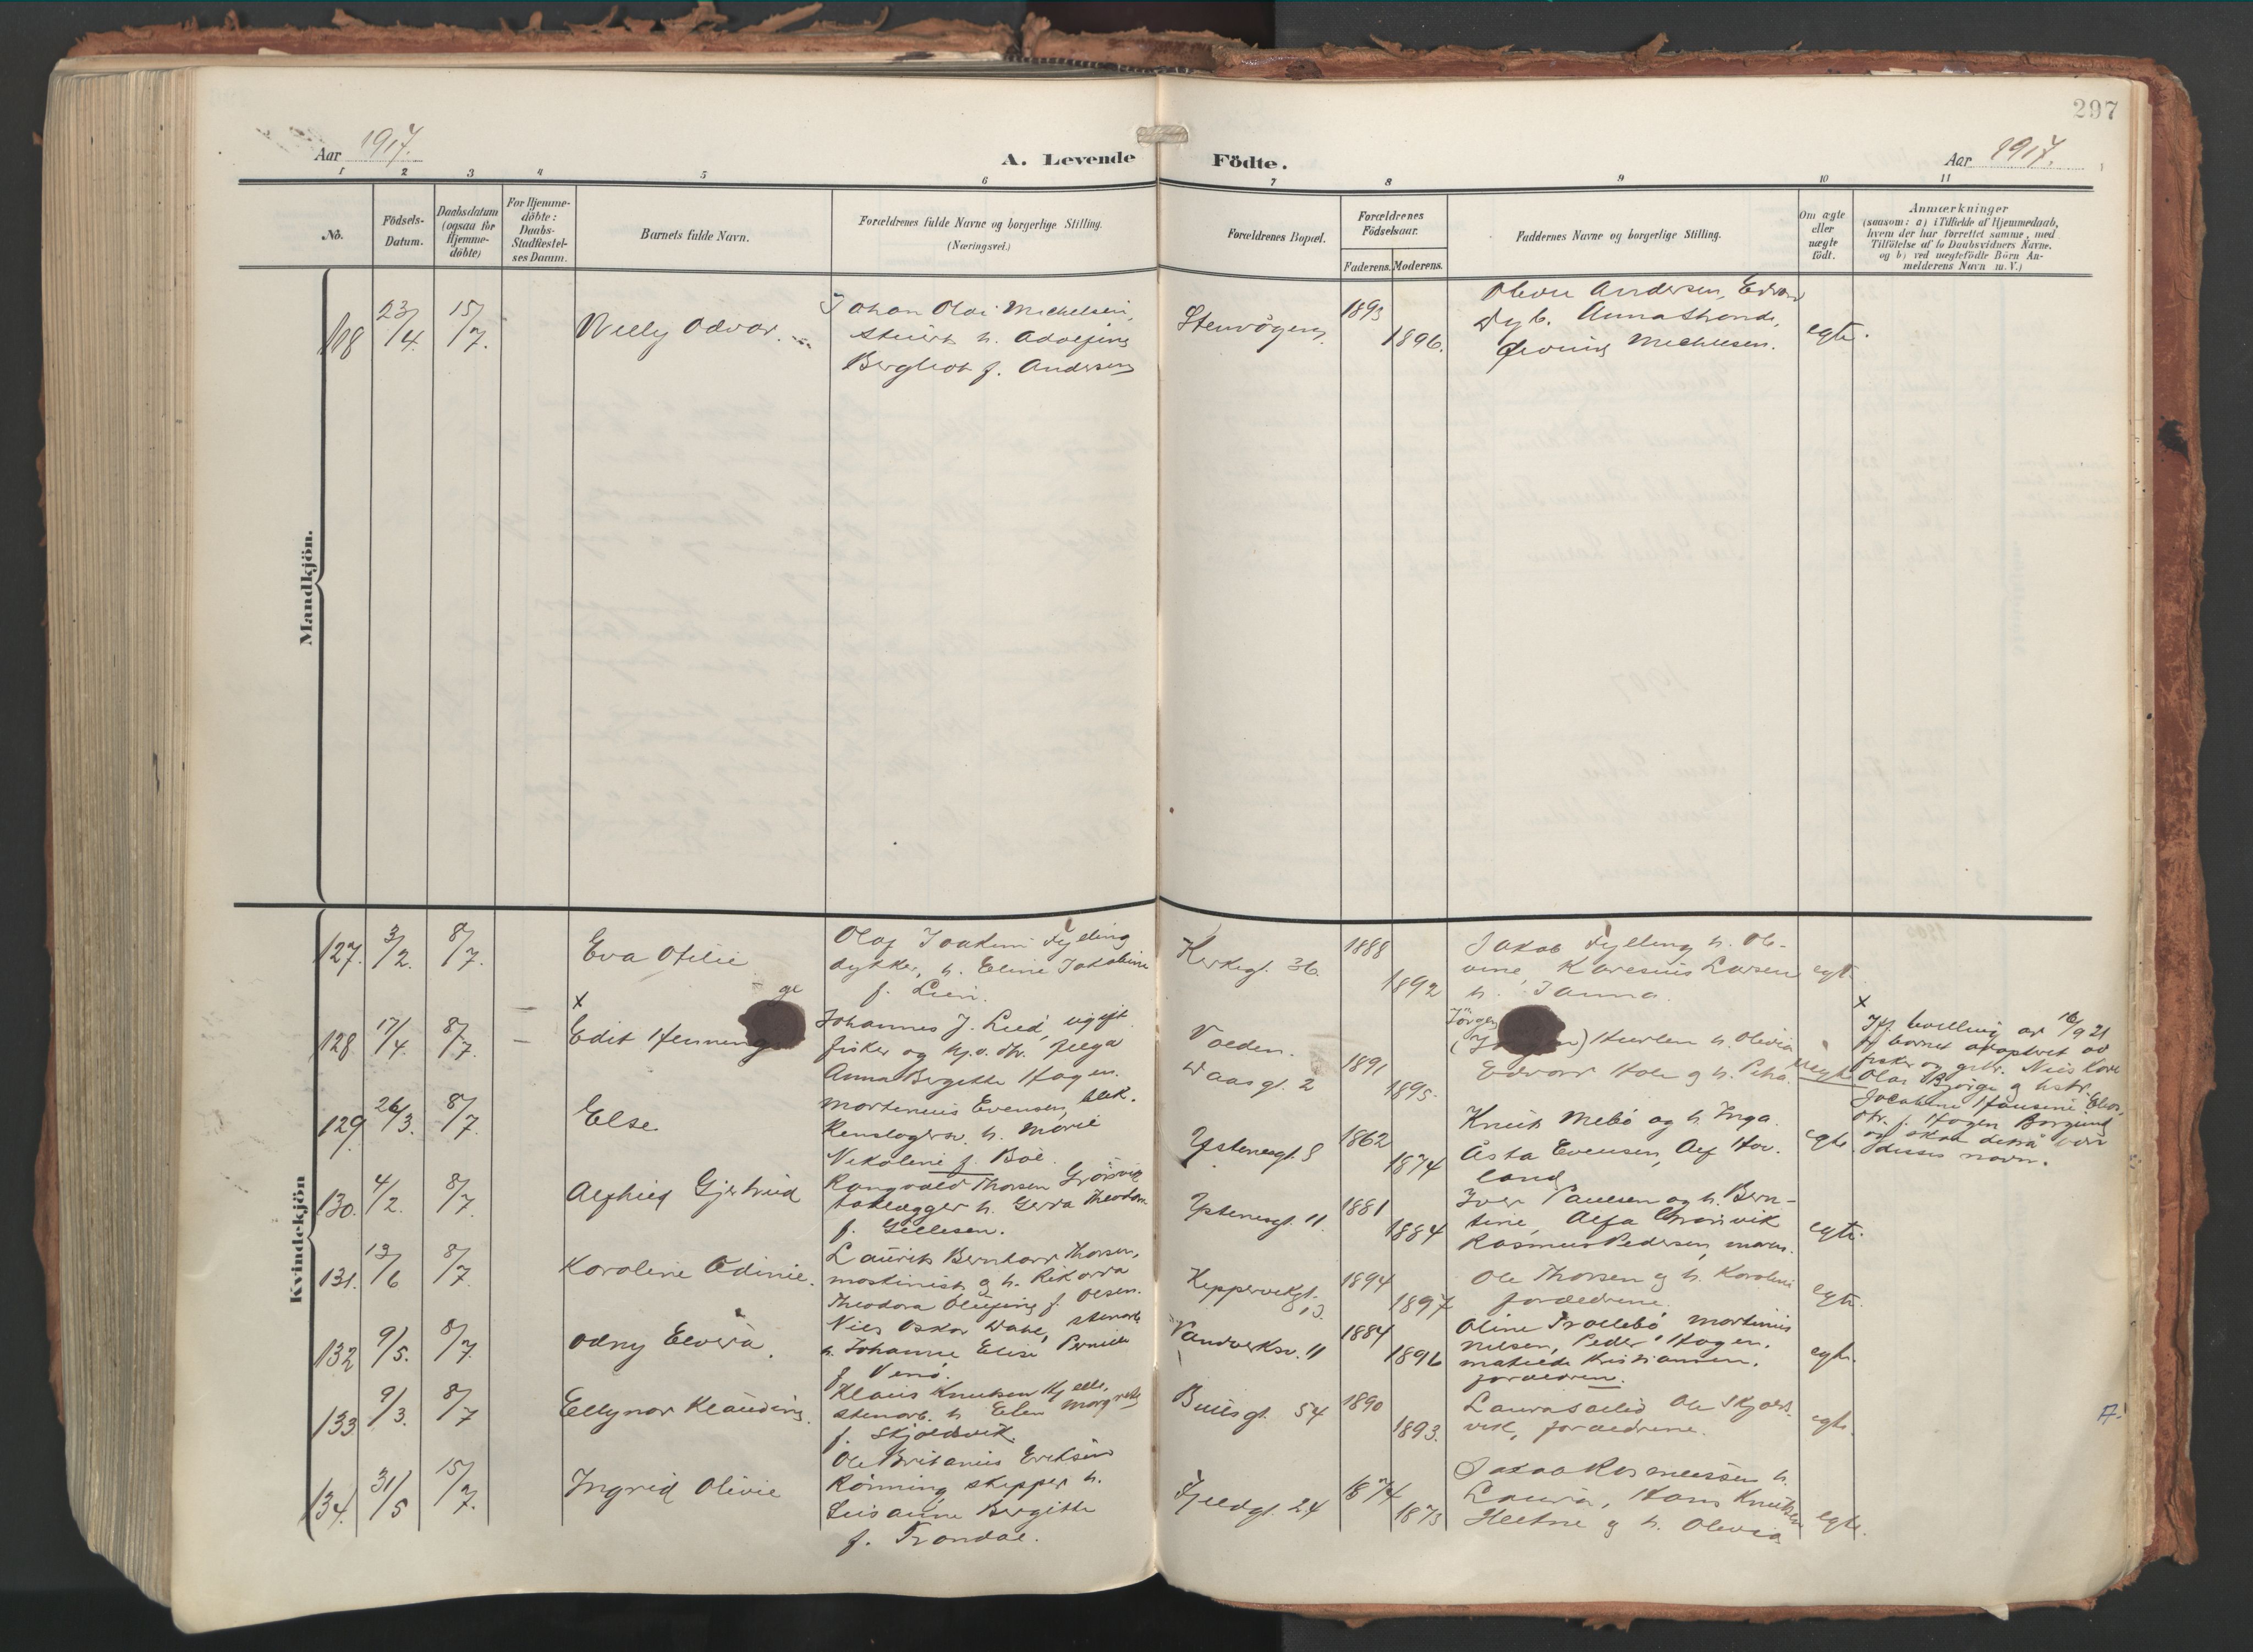 297
Aar 1917.
A. Levende Födte.
Aar 1917.
1 2 3 4 5 6 7 8 9 10 11
No.
Födsels-
Datum.
Daabsdatum
(ogsaa for
Hjemme-
döbte)
For Hjemme-
döbte:
Daabs-
Stadfæstel-
ses Datum.
Barnets fulde Navn.
Forældrenes fulde Navne og borgerlige Stilling.
(Næringsvei.)
Forældrenes Bopæl.
Forældrenes
Födselsaar.
Faderens. Moderens.
Faddernes Navne og borgerlige Stilling.
Om ægte
eller
uægte
födt.
Anmærkninger
(saasom: a) i Tilfælde af Hjemmedaab,
hvem der har forrettet samme, med
Tilföielse af to Daabsvidners Navne.
og b) ved uægtefödte Börn An-
melderens Navn m. V.)
Mandkjön.
118
23/4.
15/7.
Willy Odvar.
Johan Olai Michelsen,
stuert h. Adolfine
Bergliot f. Andersen
Stenvågen
1893
1896.
Oline Andersen, Edvard
Dyb. Anna Strand,
Michelsen.
egte.
Kvindekjön
127.
3/2.
8/7.
Eva Otilie
Olaf Joakim Fylling
dykker, h. Eline Jakobine
f. Lien.
Kirkegt. 36.
1888
1892
Jakob Fylling h. Ol-
vine Karesius Larsen
h. Janna.
egt.
128
17/4.
8/7.
x
Edit Henning
Johannes J. Lied, ugift
fisker og
Anna Birgitte Hagen.
Volden.
Waasgt. 2
1891
1895.
Jörgen
h. Olivia
Edvard Hole g h. Petra.
uegte
x
Iflg. bevilling av 16/9 21
er barnet adopteret av
fisker og Nils Kore
Olai Bjørge g hstr.
Jacobine Hansine
f. Hagen Borgund
og skal
disses navn.
129
26/3.
8/7.
Else
Martinius Evensen, blik.
h. Marie
Nikoline f. Boe.
Ystenesgt. 9
1862
1874
Knut Mebö og h. Inga.
Åsta Evensen, Alf Hov.
land
egte.
130.
4/2.
8/7.
Alfhild Gjertrud
Rangvald Thorsen Grönvik
h. Gerda Theodora
f. Gillesen.
Ystenesgt. 11.
1881
1884
Iver Paulsen og h. Bern-
tine, Alfa Grönvik
Rasmus Pedersen,
egte.
131.
12/6
8/7.
Karoline Odinie.
Laurits Bernhard Thorsen,
maskinist g h. Rikarda
Theodora f. Olsen.
Kippervikgt.
13.
1894
1897
Ole Thorsen g h. Karoline
forældrene.
egte.
132
9/5.
8/7.
Odny Elvira.
Nils Oskar Dahl, stenarb
h. Johanne Elise Pernille
f. Venö.
Vandverksv. 11
1884
1896
Oline Trollebö, Martinius
Nilsen, Peder Hagen.
Matilde Kristiansen.
forældren.
egte.
133
9/3.
8/7
Ellynor Klaudine.
Klaus Knutsen
stenarb. h Elen Margrete
f. Skjoldvik.
Buusgt. 54
1890
1893.
Laura Ole Skjold-
vik, forældrene.
egte.
A.
134.
31/5
15/7.
Ingrid Olivie
Ole Britanius Eriksen
Rönning skipper h.
Birgitte
f. Trondal.
Fjeldgt. 24
1874
1873
Jakob Rasmussen h.
Laura, Hans Knutsen
Helene g h. Olivia
egte.